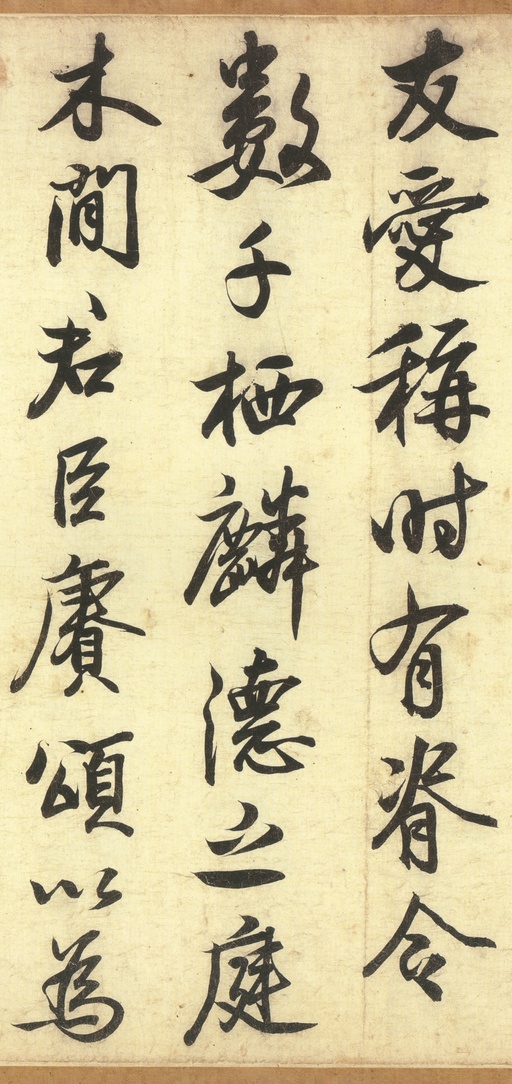 友愛稱时有脊令
數千栖麟德之庭
木間君臣賡頌以為